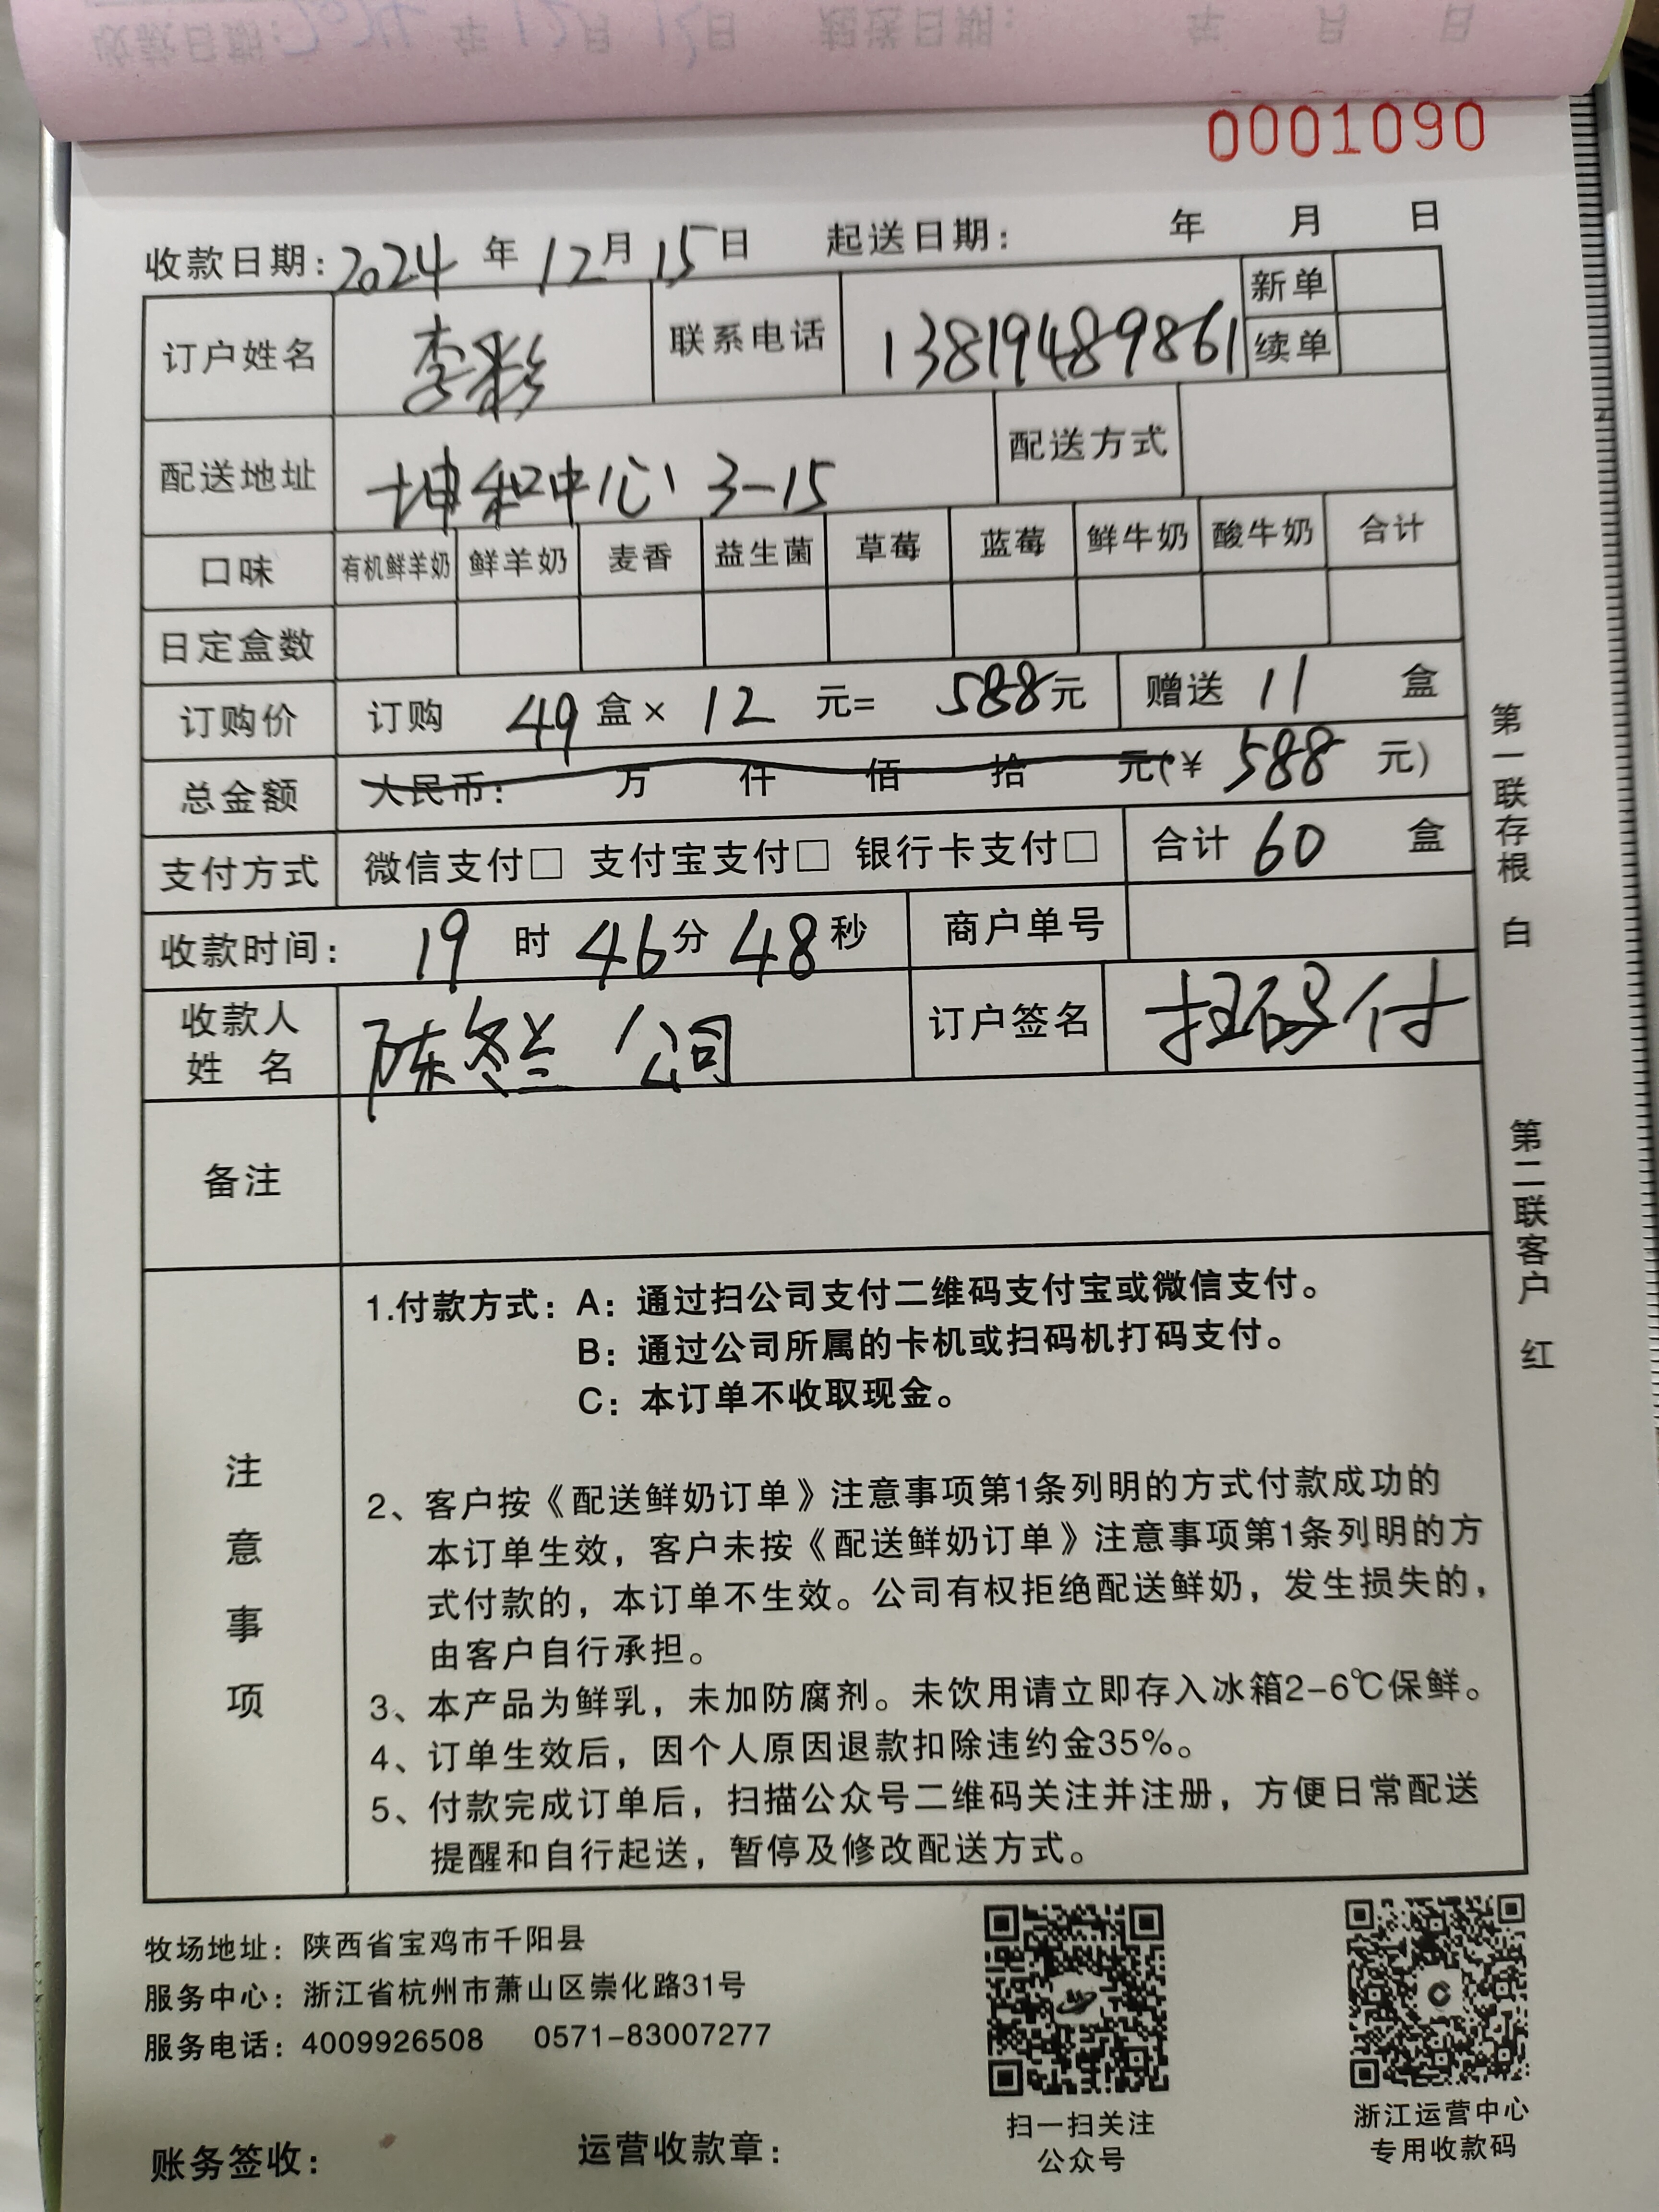 0001090
收款日期：2024 年 12月 15日 起送日期： 年 月 日
订户姓名 李彩 联系电话 13819489861 新单
续单
配送地址 坤和中心 3-15 配送方式
口味 有机鲜羊奶 鲜羊奶 麦香 益生菌 草莓 蓝莓 鲜牛奶 酸牛奶 合计
日定盒数
订购价 订购 49 盒× 12 元= 588元 赠送 11 盒
总金额 人民币： 万 仟 佰 拾 元(¥ 588 元)
支付方式 微信支付□ 支付宝支付□ 银行卡支付□ 合计 60 盒
收款时间： 19 时 46分 48秒 商户单号
收款人
姓 名 陈冬兰 公司 订户签名 扫码付
备注
注意事项
1.付款方式：A：通过扫公司支付二维码支付宝或微信支付。
B：通过公司所属的卡机或扫码机打码支付。
C：本订单不收取现金。
2、客户按《配送鲜奶订单》注意事项第1条列明的方式付款成功的
本订单生效，客户未按《配送鲜奶订单》注意事项第1条列明的方
式付款的，本订单不生效。公司有权拒绝配送鲜奶，发生损失的，
由客户自行承担。
3、本产品为鲜乳，未加防腐剂。未饮用请立即存入冰箱2-6℃保鲜。
4、订单生效后，因个人原因退款扣除违约金35%。
5、付款完成订单后，扫描公众号二维码关注并注册，方便日常配送
提醒和自行起送，暂停及修改配送方式。
第一联存根 白
第二联客户 红
牧场地址：陕西省宝鸡市千阳县
服务中心：浙江省杭州市萧山区崇化路31号
服务电话：4009926508 0571-83007277
扫一扫关注
公众号
浙江运营中心
专用收款码
账务签收： 运营收款章：